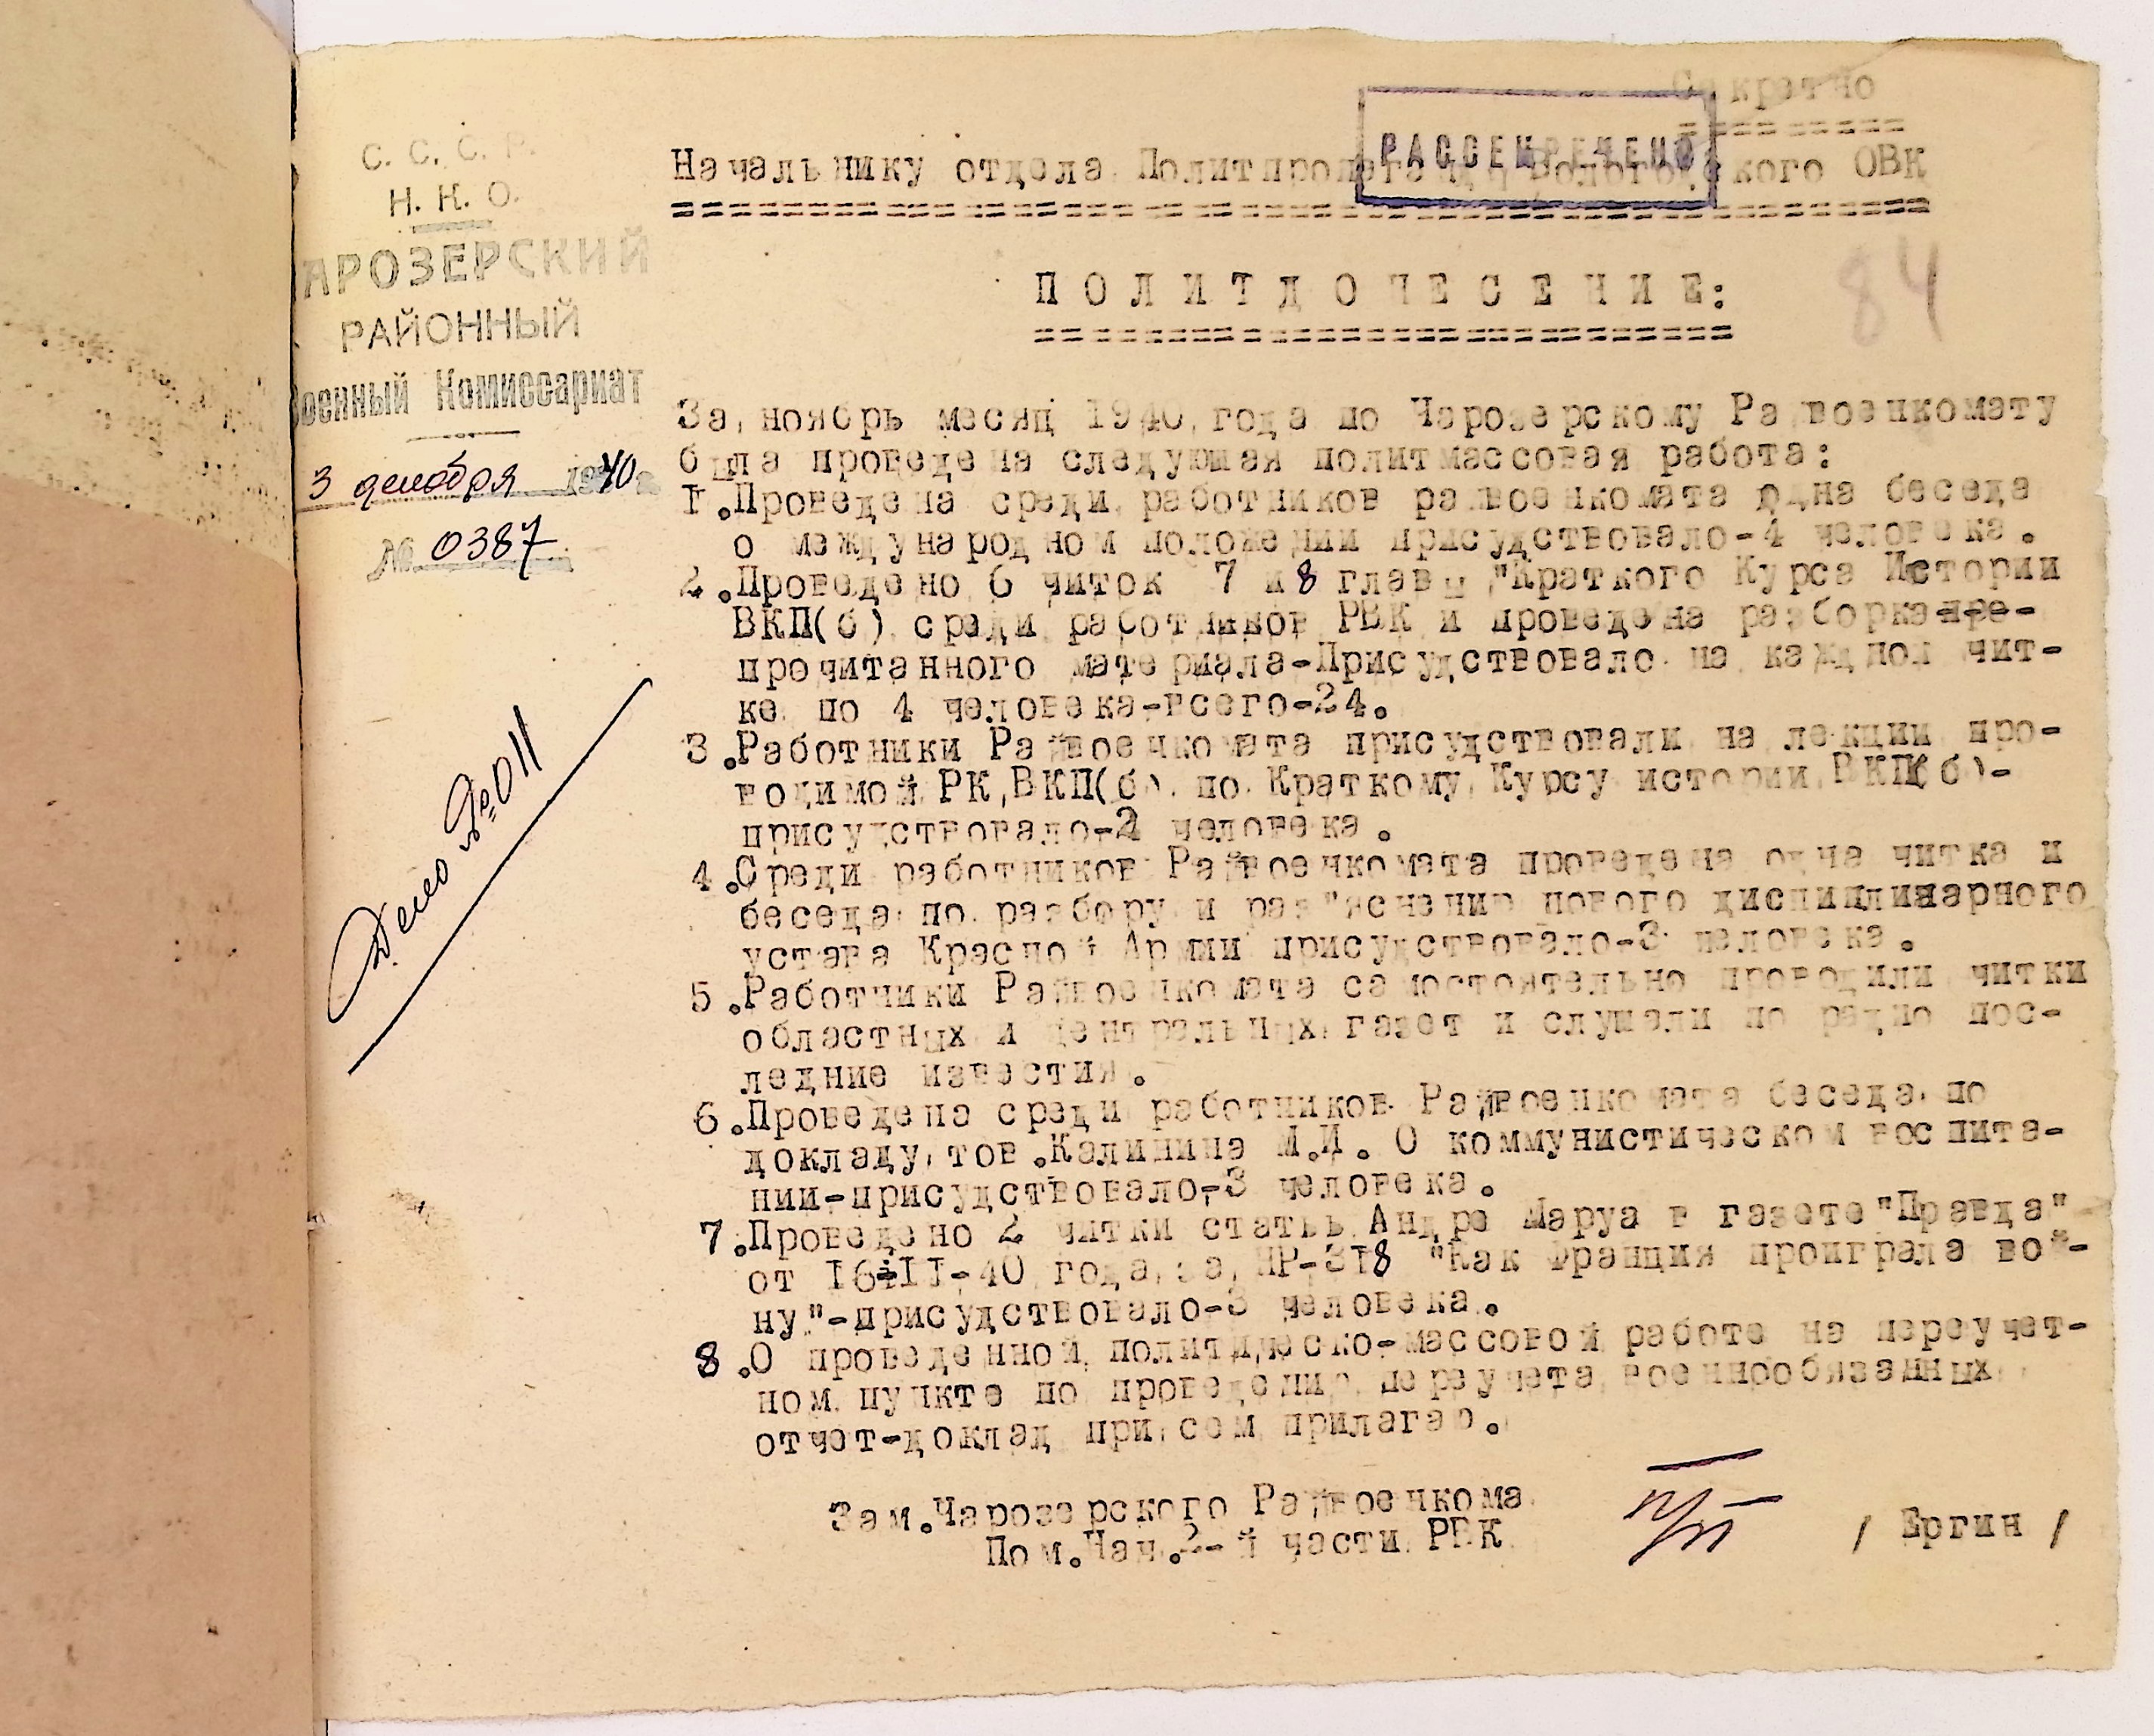 Секретно
РАССЕКРЕЧЕНО
Начальнику отдела Политпропаганды Вологодского ОВК
ПОЛИТДОНЕСЕНИЕ:
84
С. С. С. Р.
Н. К. О.
ЧАРОЗЕРСКИЙ
РАЙОННЫЙ
Военный Комиссариат
3 декабря 1940 г.
№ 0387
Дело №011
За ноябрь месяц 1940 года по Чарозерскому Райвоенкомату
была проведена следующая политмассовая работа:
I.Проведена среди работников райвоенкомата одна беседа
о международном положении присудствовало-4 человека.
2.Проведено 6 читок 7 и 8 главы "Краткого Курса Истории
ВКП(б) среди работников РВК и проведена разборка пре-
прочитанного материала-Присудствовало на каждой чит-
ке по 4 человека-всего-24.
3.Работники Райвоенкомата присудствовали на лекции про-
водимой РК,ВКП(б) по Краткому Курсу истории ВКП(б)-
присудствовало-2 человека.
4.Среди работников Райвоенкомата проведена одна читка и
беседа по разбору и раз"яснению нового дисциплинарного
устава Красной Армии присудствовало-3 человека.
5.Работники Райвоенкомата самостоятельно проводили читки
областных и центральных газет и слушали по радио пос-
ледние известия.
6.Проведена среди работников Райвоенкомата беседа по
докладу тов.Калинина М.И. О коммунистическом воспита-
нии-присудствовало-3 человека.
7.Проведено 2 читки стать Андре Маруа в газете"Правда"
от I6-II-40 года за НР-3I8 "Как Франция проиграла вой-
ну"-присудствовало-3 человека.
8.О проведенной политическо-массовой работе на переучет-
ном пункте по проведению переучета военнообязанных
отчет-доклад при сем прилагаю.
Зам.Чарозерского Райвоенкома
Пом.Нач.2-й части РВК
/ Ергин /